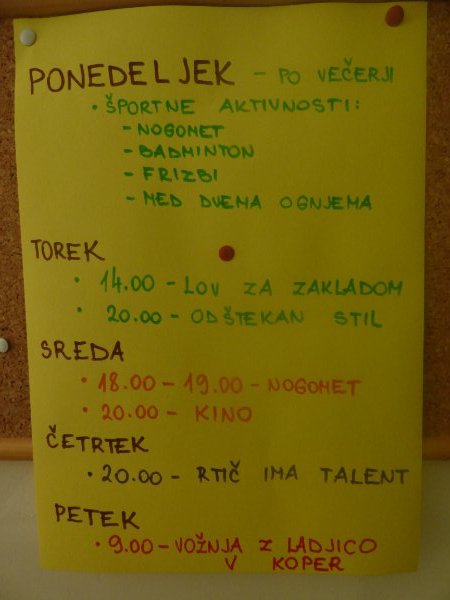 PONEDELJEK - PO VEČERJI
• ŠPORTNE AKTIVNOSTI:
- NOGOMET
- BADMINTON
- FRIZBI
- MED DVEMA OGNJEMA
TOREK
• 14.00 - LOV ZA ZAKLADOM
• 20.00 - ODŠTEKAN STIL
SREDA
• 18.00 - 19.00 - NOGOMET
• 20.00 - KINO
ČETRTEK
• 20.00 - RTIČ IMA TALENT
PETEK
• 9.00 - VOŽNJA Z LADJICO
V KOPER